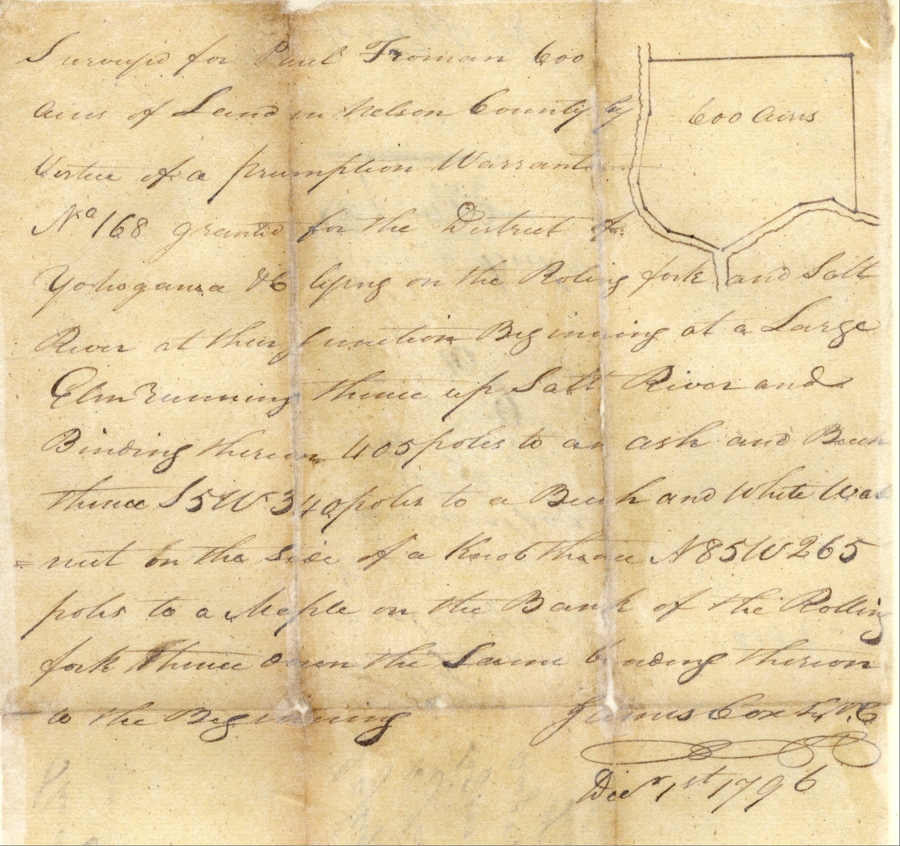 Survey'd for Paul Froman 600
600 Acres
Acres of Land in Nelson County by
Vertue of a preumption Warrant
No 168 granted for the District of
Yohogania &C lying on the Roling fork and Salt
River at their Junction Beginning at a Large
Elm Running thence up Salt River and
Binding thereon 405 poles to an ash and Beech
thence S5W 340 poles to a Beech and White Wal
= nut on the Side of a Knob thence N85W 265
poles to a Maple on the Bank of the Rolling
fork thence down the Same binding thereon
to the Beginning James Cox
Decr 1st 1796